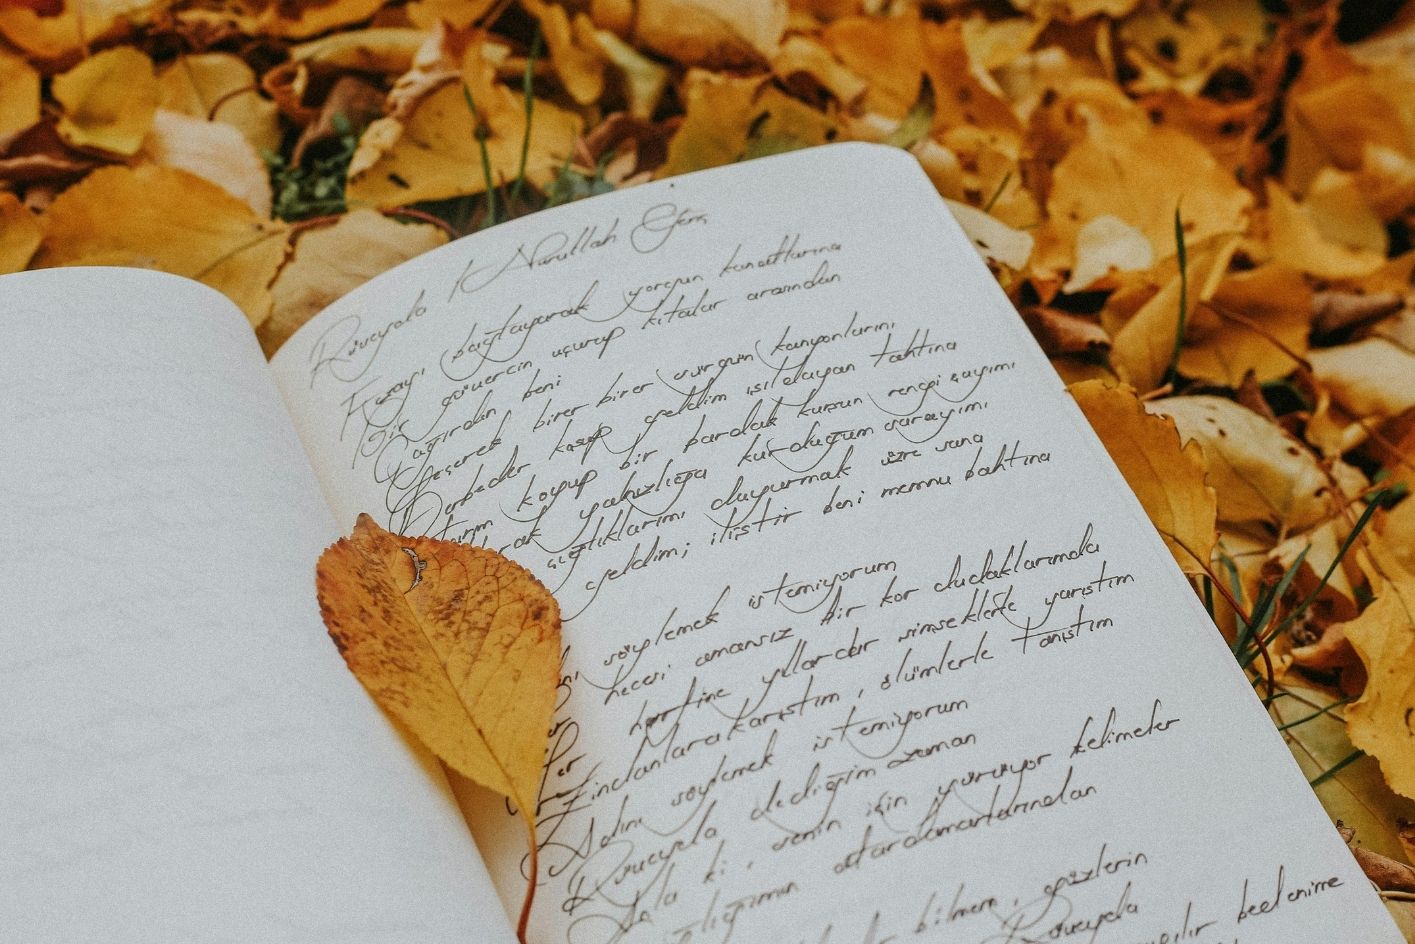 Rüveyda / Nurullah Genç
Feza'yı bağlayarak yorgun kanatlarına
Bir güvercin uçurup kıtalar arasından
Çağırdın beni
Geçerek birer birer sürgün kanyonlarını
Derbeder kasıp geldim ışıldayan tahtına
koyup bir bardak kurşun rengi çayımı
yalnızlığa kurduğum sarayımı
açlıklarımı duyurmak üzre sana
geldim; iliştir beni memnu bahtına
söylemek istemiyorum
hecesi amansız bir kor dudaklarımda
Her harfine yıllardır şimşeklerle yarıştım
Zindanlara karıştım, ölümlerle tanıştım
Adını söylemek istemiyorum
Rüveyda dediğim zaman
Anla ki, senin için yürüyor kelimeler
atardamarlarından
bilmem, gözlerin
Rüveyda
bedenime